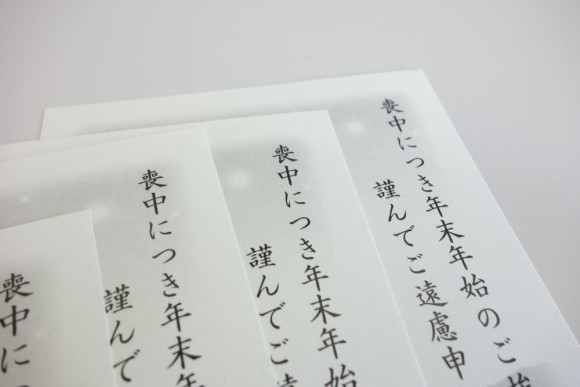 喪中につき年末年始のご
謹んでご遠慮申
喪中につき年末年始
謹んでご遠
喪中につき年末年
謹んで
喪中に